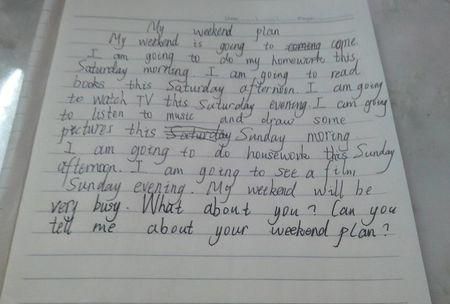 My weekend plan
My weekend is going to coming come.
I am going to do my homework this
Saturday morning. I am going to read
books this Saturday afternoon. I am going
to watch TV this Saturday evening. I am going
to listen to music and draw some
pictures this Saturday Sunday moring.
I am going to do housework this Sunday
afternoon. I am going to see a film
Sunday evening. My weekend will be
very busy. What about you? Can you
tell me about your weekend plan?